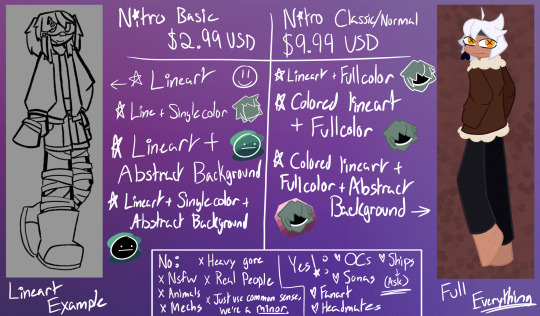 N☆tro Basic
$2.99 USD
N☆tro Classic/Normal
$9.99 USD
←☆ Lineart
☆ Line + Single color
☆ Lineart +
Abstract Background
☆ Lineart + Single color +
Abstract Background
☆ Lineart + Full color
☆ Colored lineart
+ Fullcolor
☆ Colored lineart +
Fullcolor + Abstract
Background →
No:
x Heavy gore
x Nsfw
x Real People
x Animals
x Mechs
x Just use common sense,
we're a minor.
Yes!:
♥ OCs
♥ Ships
↓
(Ask)
♥ Sonas
♥ Fanart
♥ Headmates
Lineart
Example
Full
Everything